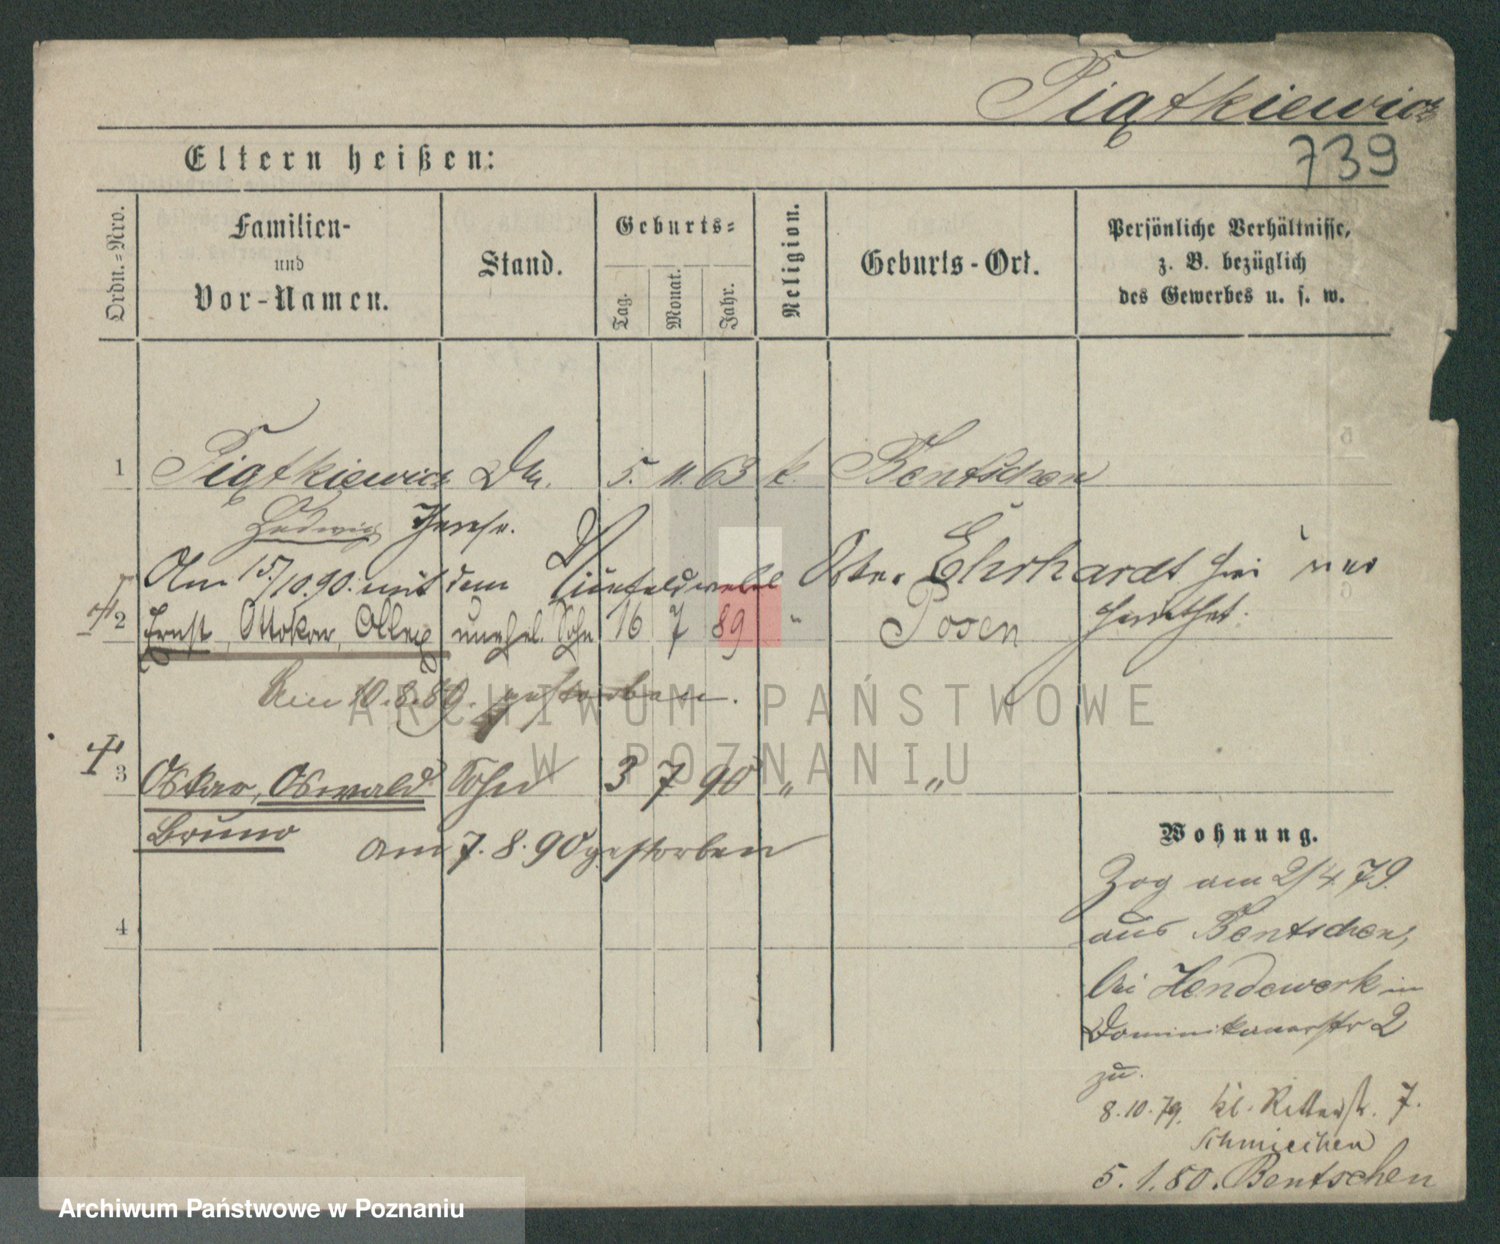 Piątkiewicz
739
Eltern heißen:
Ordn.-Nro.
Familien-
und
Vor-Namen.
Stand.
Geburts-
Tag.
Monat.
Jahr.
Religion.
Geburts-Ort.
Persönliche Verhältnisse,
z. B. bezüglich
des Gewerbes u. s. w.
1 Piątkiewicz 5. 11. 63 k. Bentschen
Hedwig Therese.
Am 15/10.90. mit dem Vizefeldwebel Oskar Ehrhardt hier ver
heirathet.
2 Ernst, Ottokar, unehel. Sohn 16 7 89 " Posen
Am 10.8.89. gestorben.
3 Oskar, Oswald Sohn 3 7 90 " "
Bruno
am 7. 8. 90 gestorben
4
Wohnung.
Zog am 2/4. 79.
aus Bentschen,
bei Hendewerk in
Dominikanerstr 2
zu.
8.10.79. kl. Ritterstr. 7.
Schmieichen
5. 1. 80. Bentschen
ARCHIWUM PAŃSTWOWE
W POZNANIU
Archiwum Państwowe w Poznaniu